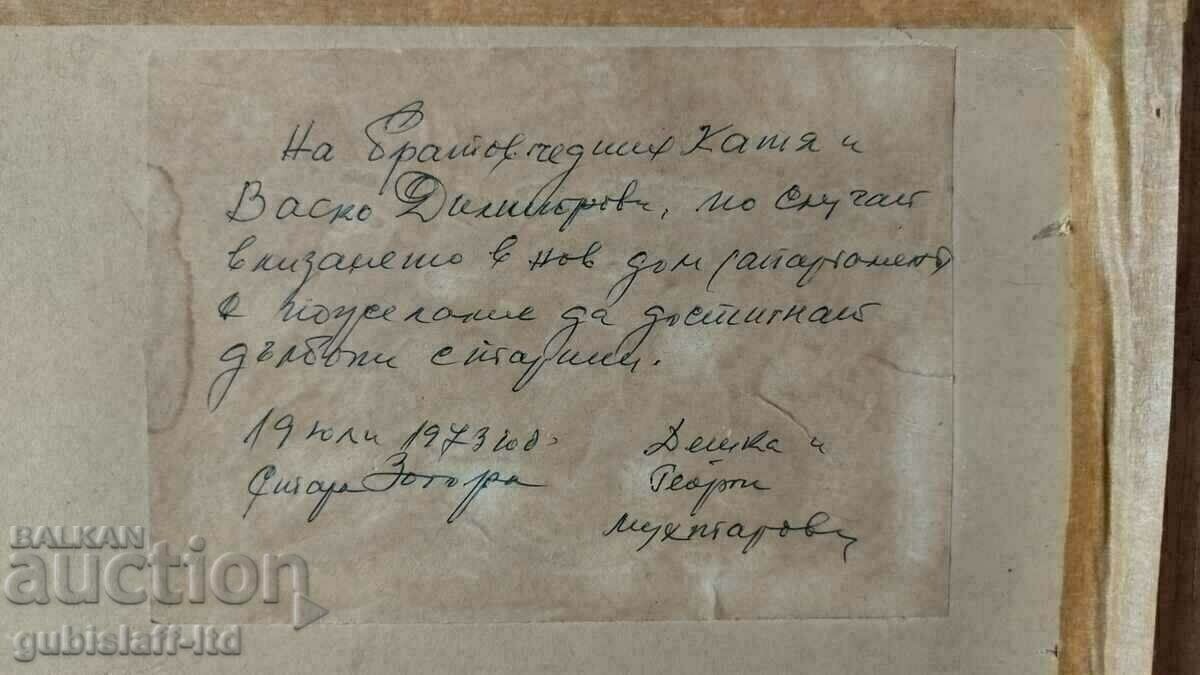 На братовчедних Катя и
Васко Димитрови, по случай
влизането в нов дом /апартамент
с пожелание да достигнат
дълбоки старини.
19 юли 1973 год.
Стара Загора
Дешка и
Георги
Мухтарови
BALKAN
auction
gubislaff-ltd